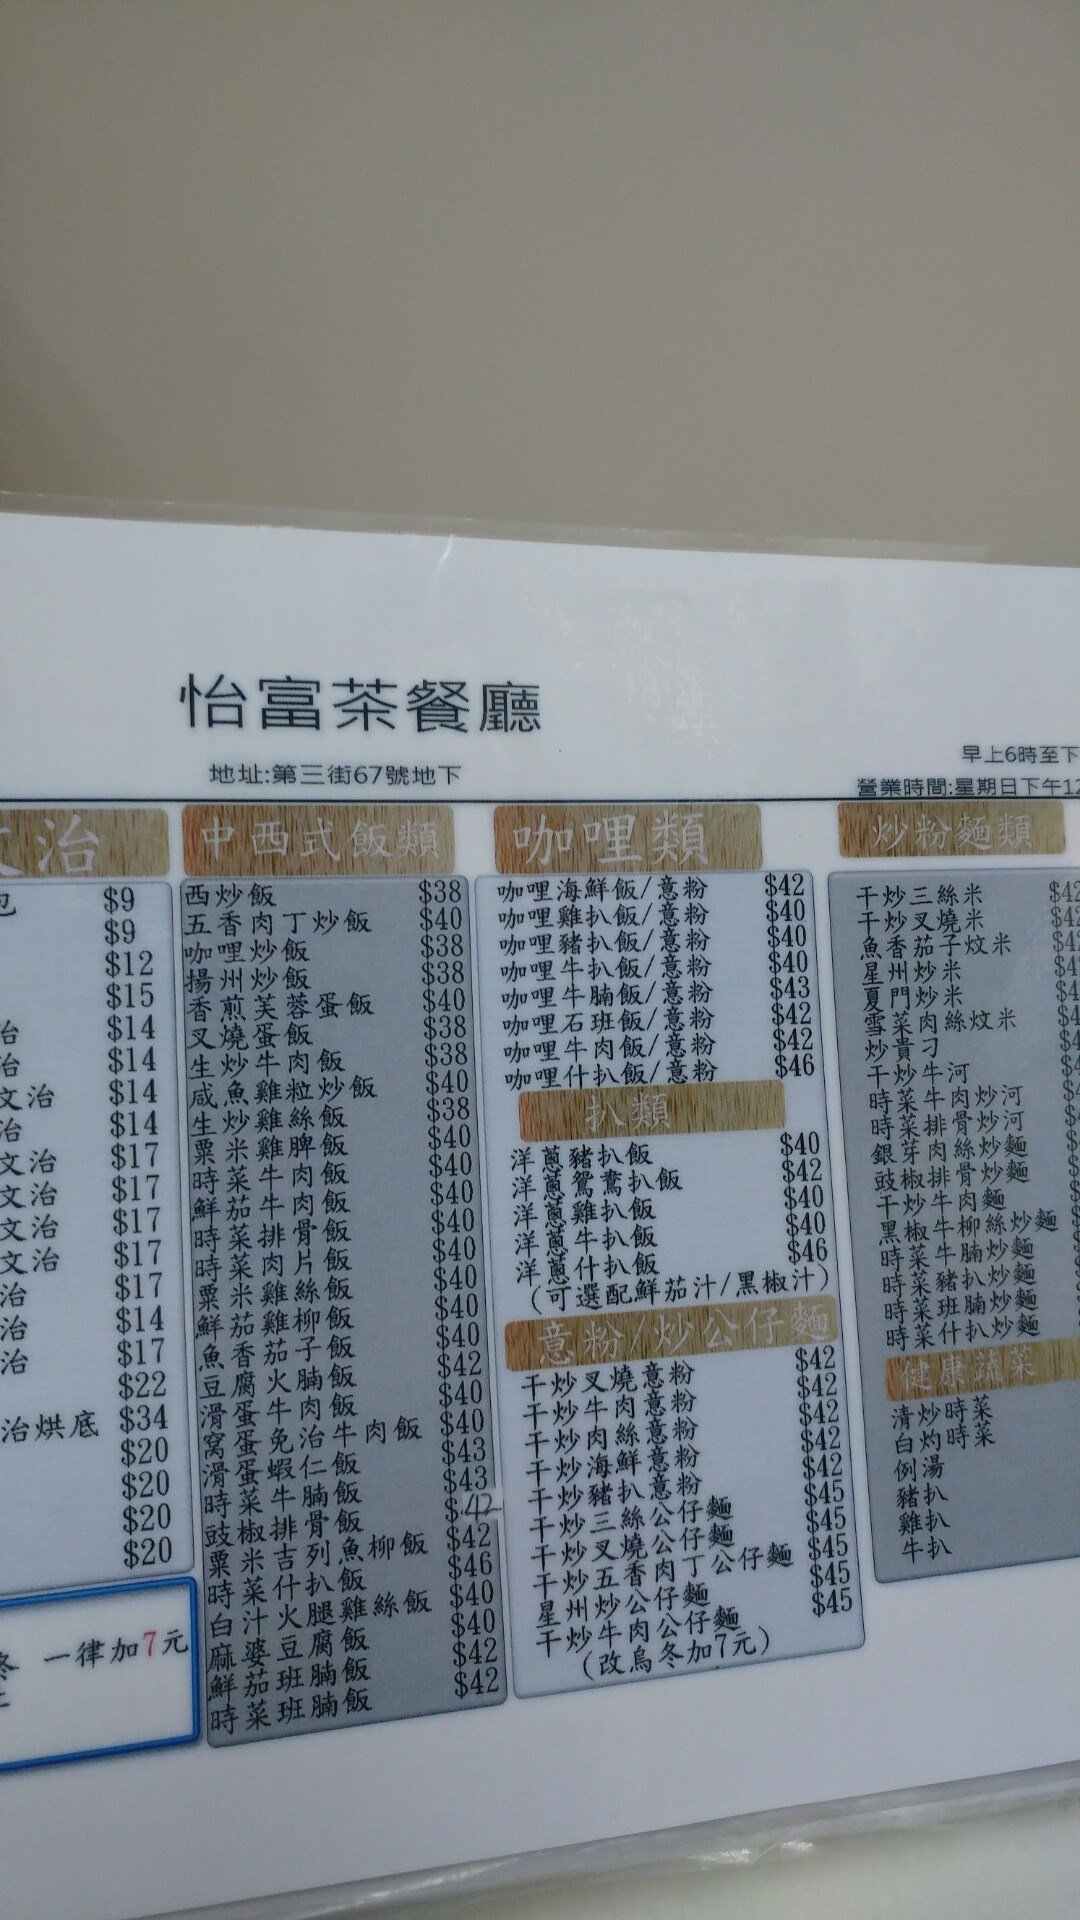 怡富茶餐廳
地址:第三街67號地下
早上6時至下
營業時間:星期日下午12
治
包 $9
$9
$12
$15
治 $14
治 $14
文治 $14
治 $14
文治 $17
文治 $17
文治 $17
文治 $17
治 $17
治 $14
治 $17
$22
治烘底 $34
$20
$20
$20
$20
一律加7元
中西式飯類
西炒飯 $38
五香肉丁炒飯 $40
咖哩炒飯 $38
揚州炒飯 $38
香煎芙蓉蛋飯 $40
叉燒蛋飯 $38
生炒牛肉飯 $38
咸魚雞粒炒飯 $40
生炒雞絲飯 $38
粟米雞脾飯 $40
時菜牛肉飯 $40
鮮茄牛肉飯 $40
時菜排骨飯 $40
時菜肉片飯 $40
粟米雞絲飯 $40
鮮茄雞柳飯 $40
魚香茄子飯 $40
豆腐火腩飯 $42
滑蛋牛肉飯 $40
窩蛋免治牛肉飯 $40
滑蛋蝦仁飯 $43
時菜牛腩飯 $43
豉椒排骨飯 $42
粟米吉列魚柳飯 $42
時菜什扒飯 $46
白汁火腿雞絲飯 $40
麻婆豆腐飯 $40
鮮茄班腩飯 $42
時菜班腩飯 $42
咖哩類
咖哩海鮮飯/意粉 $42
咖哩雞扒飯/意粉 $40
咖哩豬扒飯/意粉 $40
咖哩牛扒飯/意粉 $40
咖哩牛腩飯/意粉 $43
咖哩石班飯/意粉 $42
咖哩牛肉飯/意粉 $42
咖哩什扒飯/意粉 $46
扒類
洋蔥豬扒飯 $40
洋蔥鴛鴦扒飯 $42
洋蔥雞扒飯 $40
洋蔥牛扒飯 $40
洋蔥什扒飯 $46
(可選配鮮茄汁/黑椒汁)
意粉/炒公仔麵
干炒叉燒意粉 $42
干炒牛肉意粉 $42
干炒肉絲意粉 $42
干炒海鮮意粉 $42
干炒豬扒意粉 $42
干炒三絲公仔麵 $45
干炒叉燒公仔麵 $45
干炒五香肉丁公仔麵 $45
星州炒公仔麵 $45
干炒牛肉公仔麵 $45
(改烏冬加7元)
炒粉麵類
干炒三絲米 $42
干炒叉燒米
魚香茄子炆米
星州炒米
夏門炒米
雪菜肉絲炆米
炒貴刁
干炒牛河
時菜牛肉炒河
時菜排骨炒河
銀芽肉絲炒麵
豉椒排骨炒麵
干炒牛肉麵
黑椒牛柳絲炒麵
時菜牛腩炒麵
時菜豬扒炒麵
時菜班腩炒麵
時菜什扒炒麵
健康蔬菜
清炒時菜
白灼時菜
例湯
豬扒
雞扒
牛扒